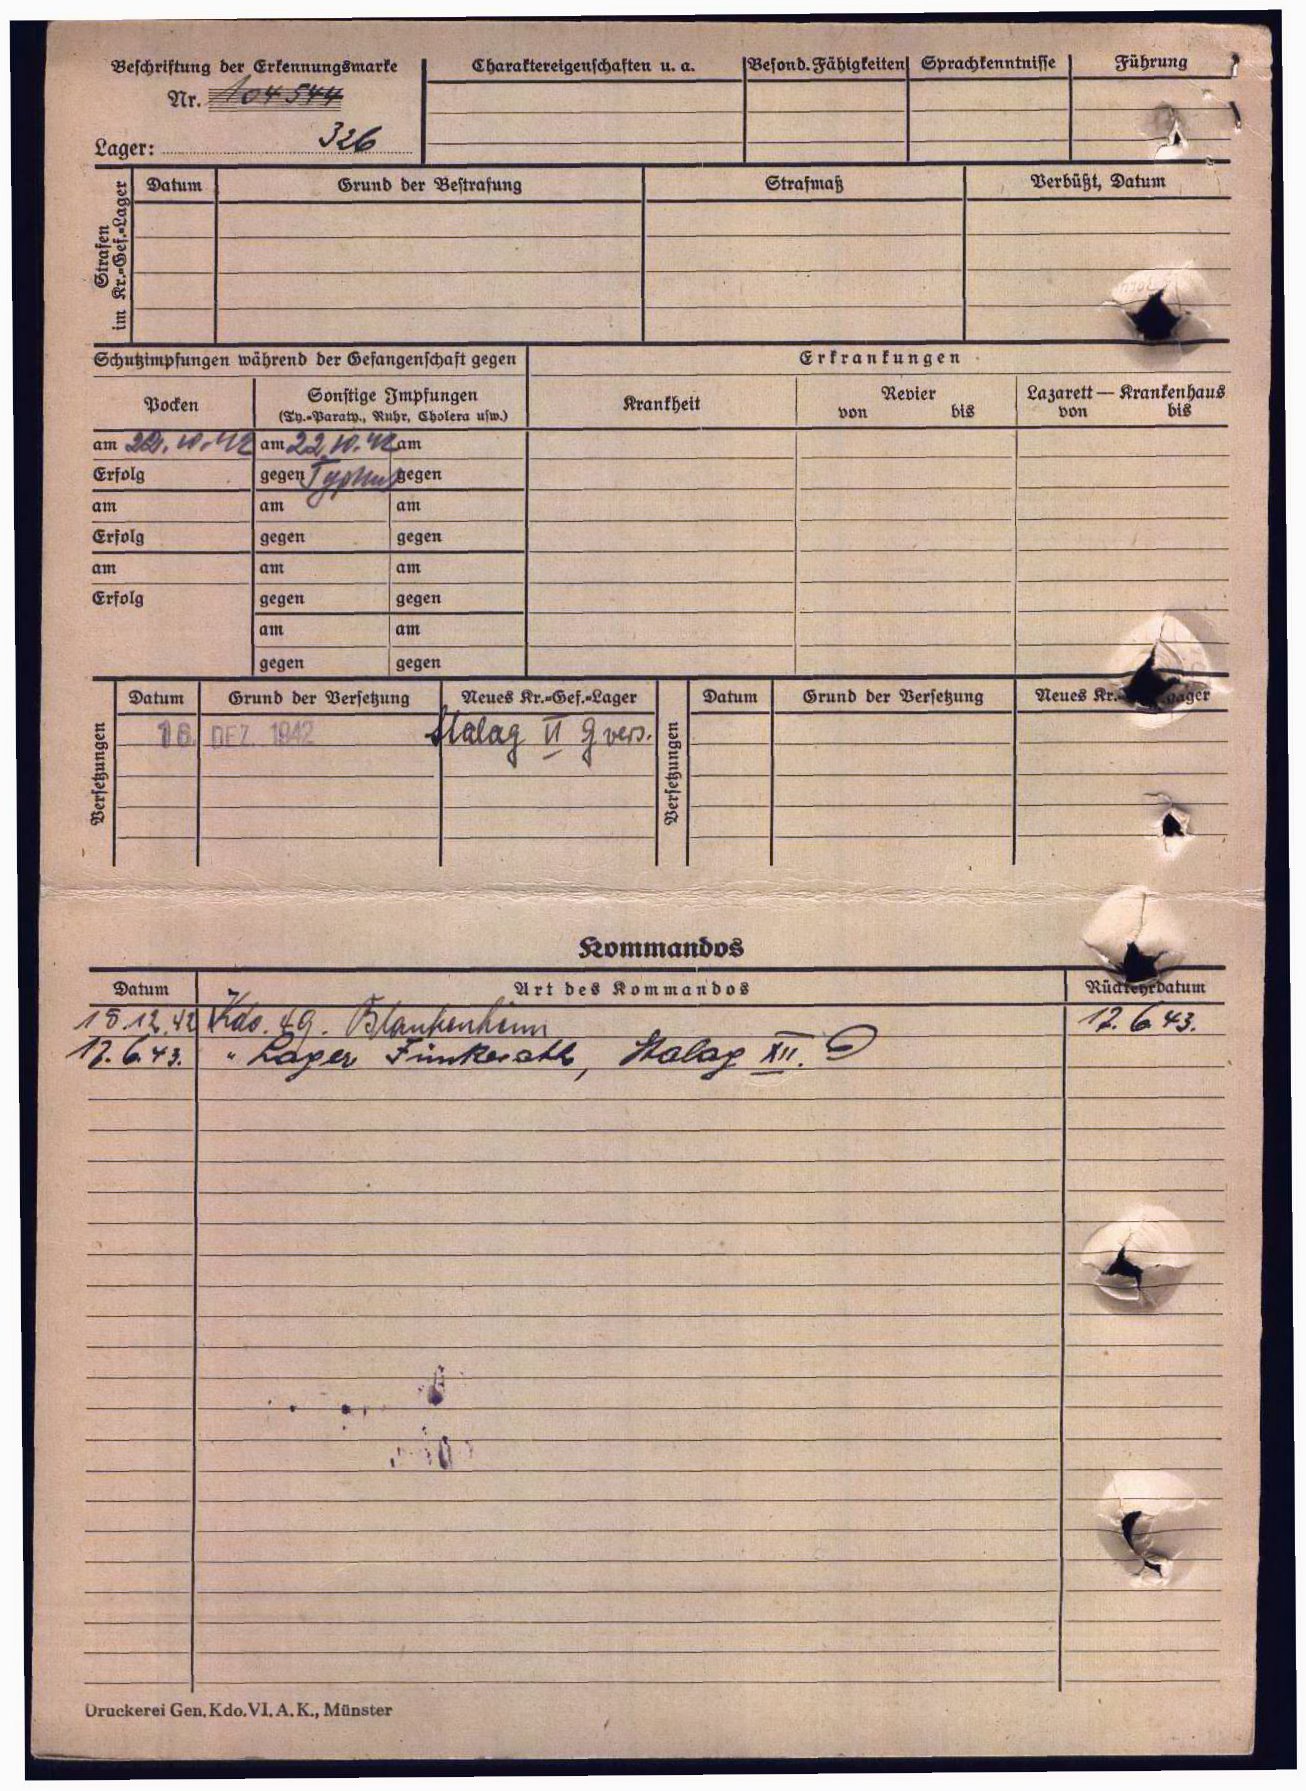 Beschriftung der Erkennungsmarke
Nr. 104544
Lager: 326
Charaktereigenschaften u. a. Besond. Fähigkeiten Sprachkenntnisse Führung
Strafen im Kr.=Gef.=Lager
Datum Grund der Bestrafung Strafmaß Verbüßt, Datum
Schutzimpfungen während der Gefangenschaft gegen
Erkrankungen
Pocken
Sonstige Impfungen
(Ty.=Paraty., Ruhr, Cholera usw.)
Krankheit
Revier
von bis
Lazarett — Krankenhaus
von bis
am 22.10.42 am 22.10.42 am
Erfolg gegen Typhus gegen
am am am
Erfolg gegen gegen
am am am
Erfolg gegen gegen
am am
gegen gegen
Versetzungen
Datum Grund der Versetzung Neues Kr.=Gef.=Lager
16. DEZ. 1942 Stalag VI G vers.
Versetzungen
Datum Grund der Versetzung Neues Kr. Lager
Kommandos
Datum Art des Kommandos Rückkehrdatum
18.12.42 Kdo. 49. Blankenheim 17.6.43.
17.6.43. " Lager Jünkerath, Stalag XII. D
Druckerei Gen. Kdo. VI. A. K., Münster